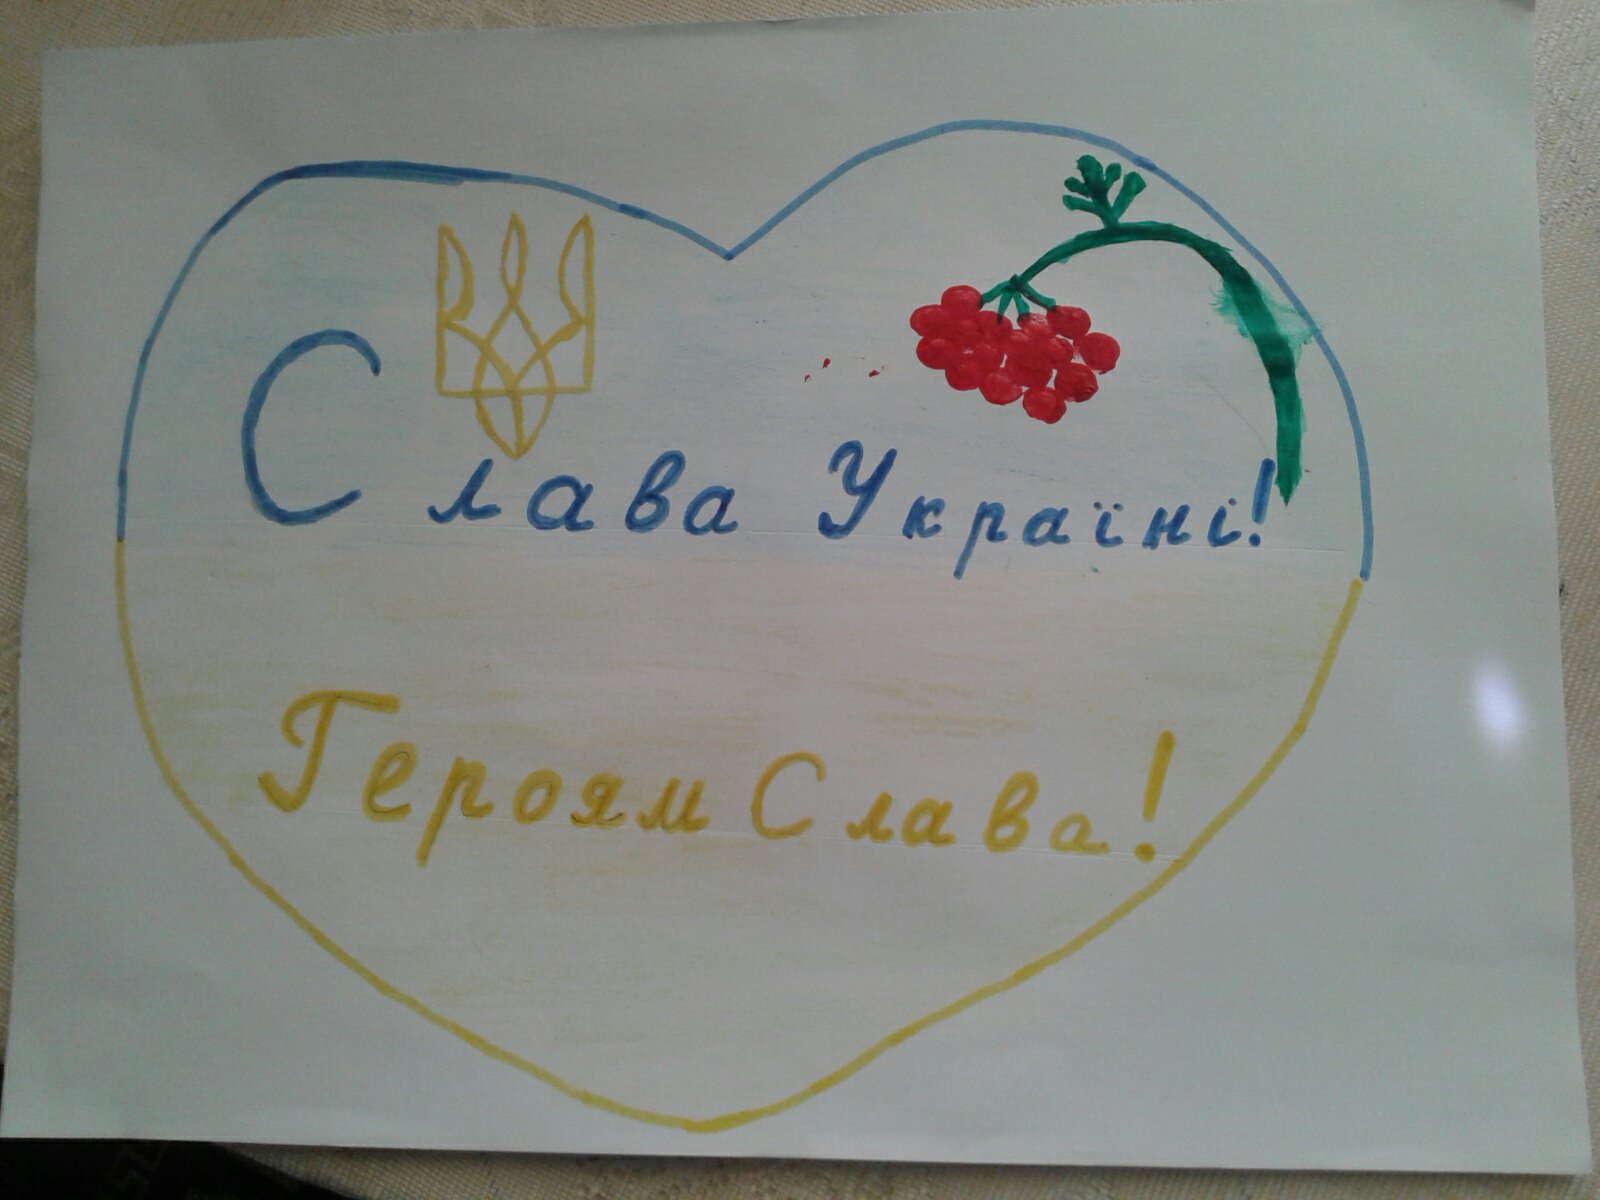 Слава Україні!
Героям Слава!